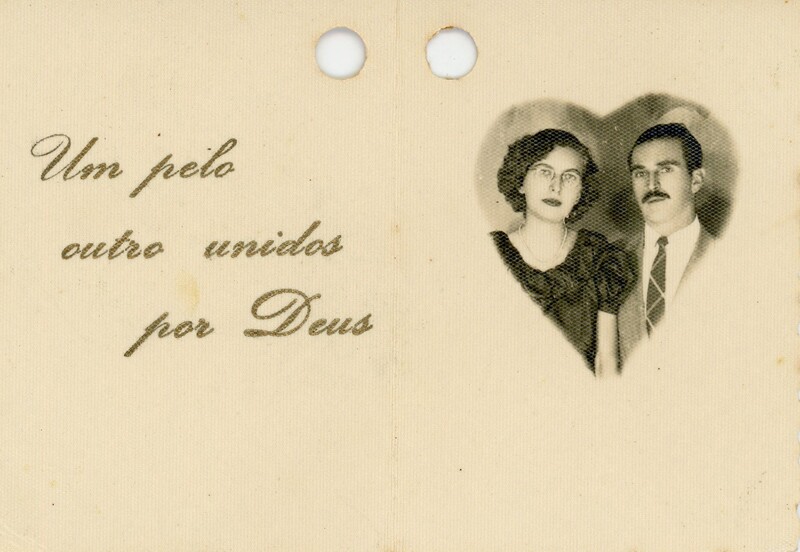 Um pelo
outro unidos
por Deus